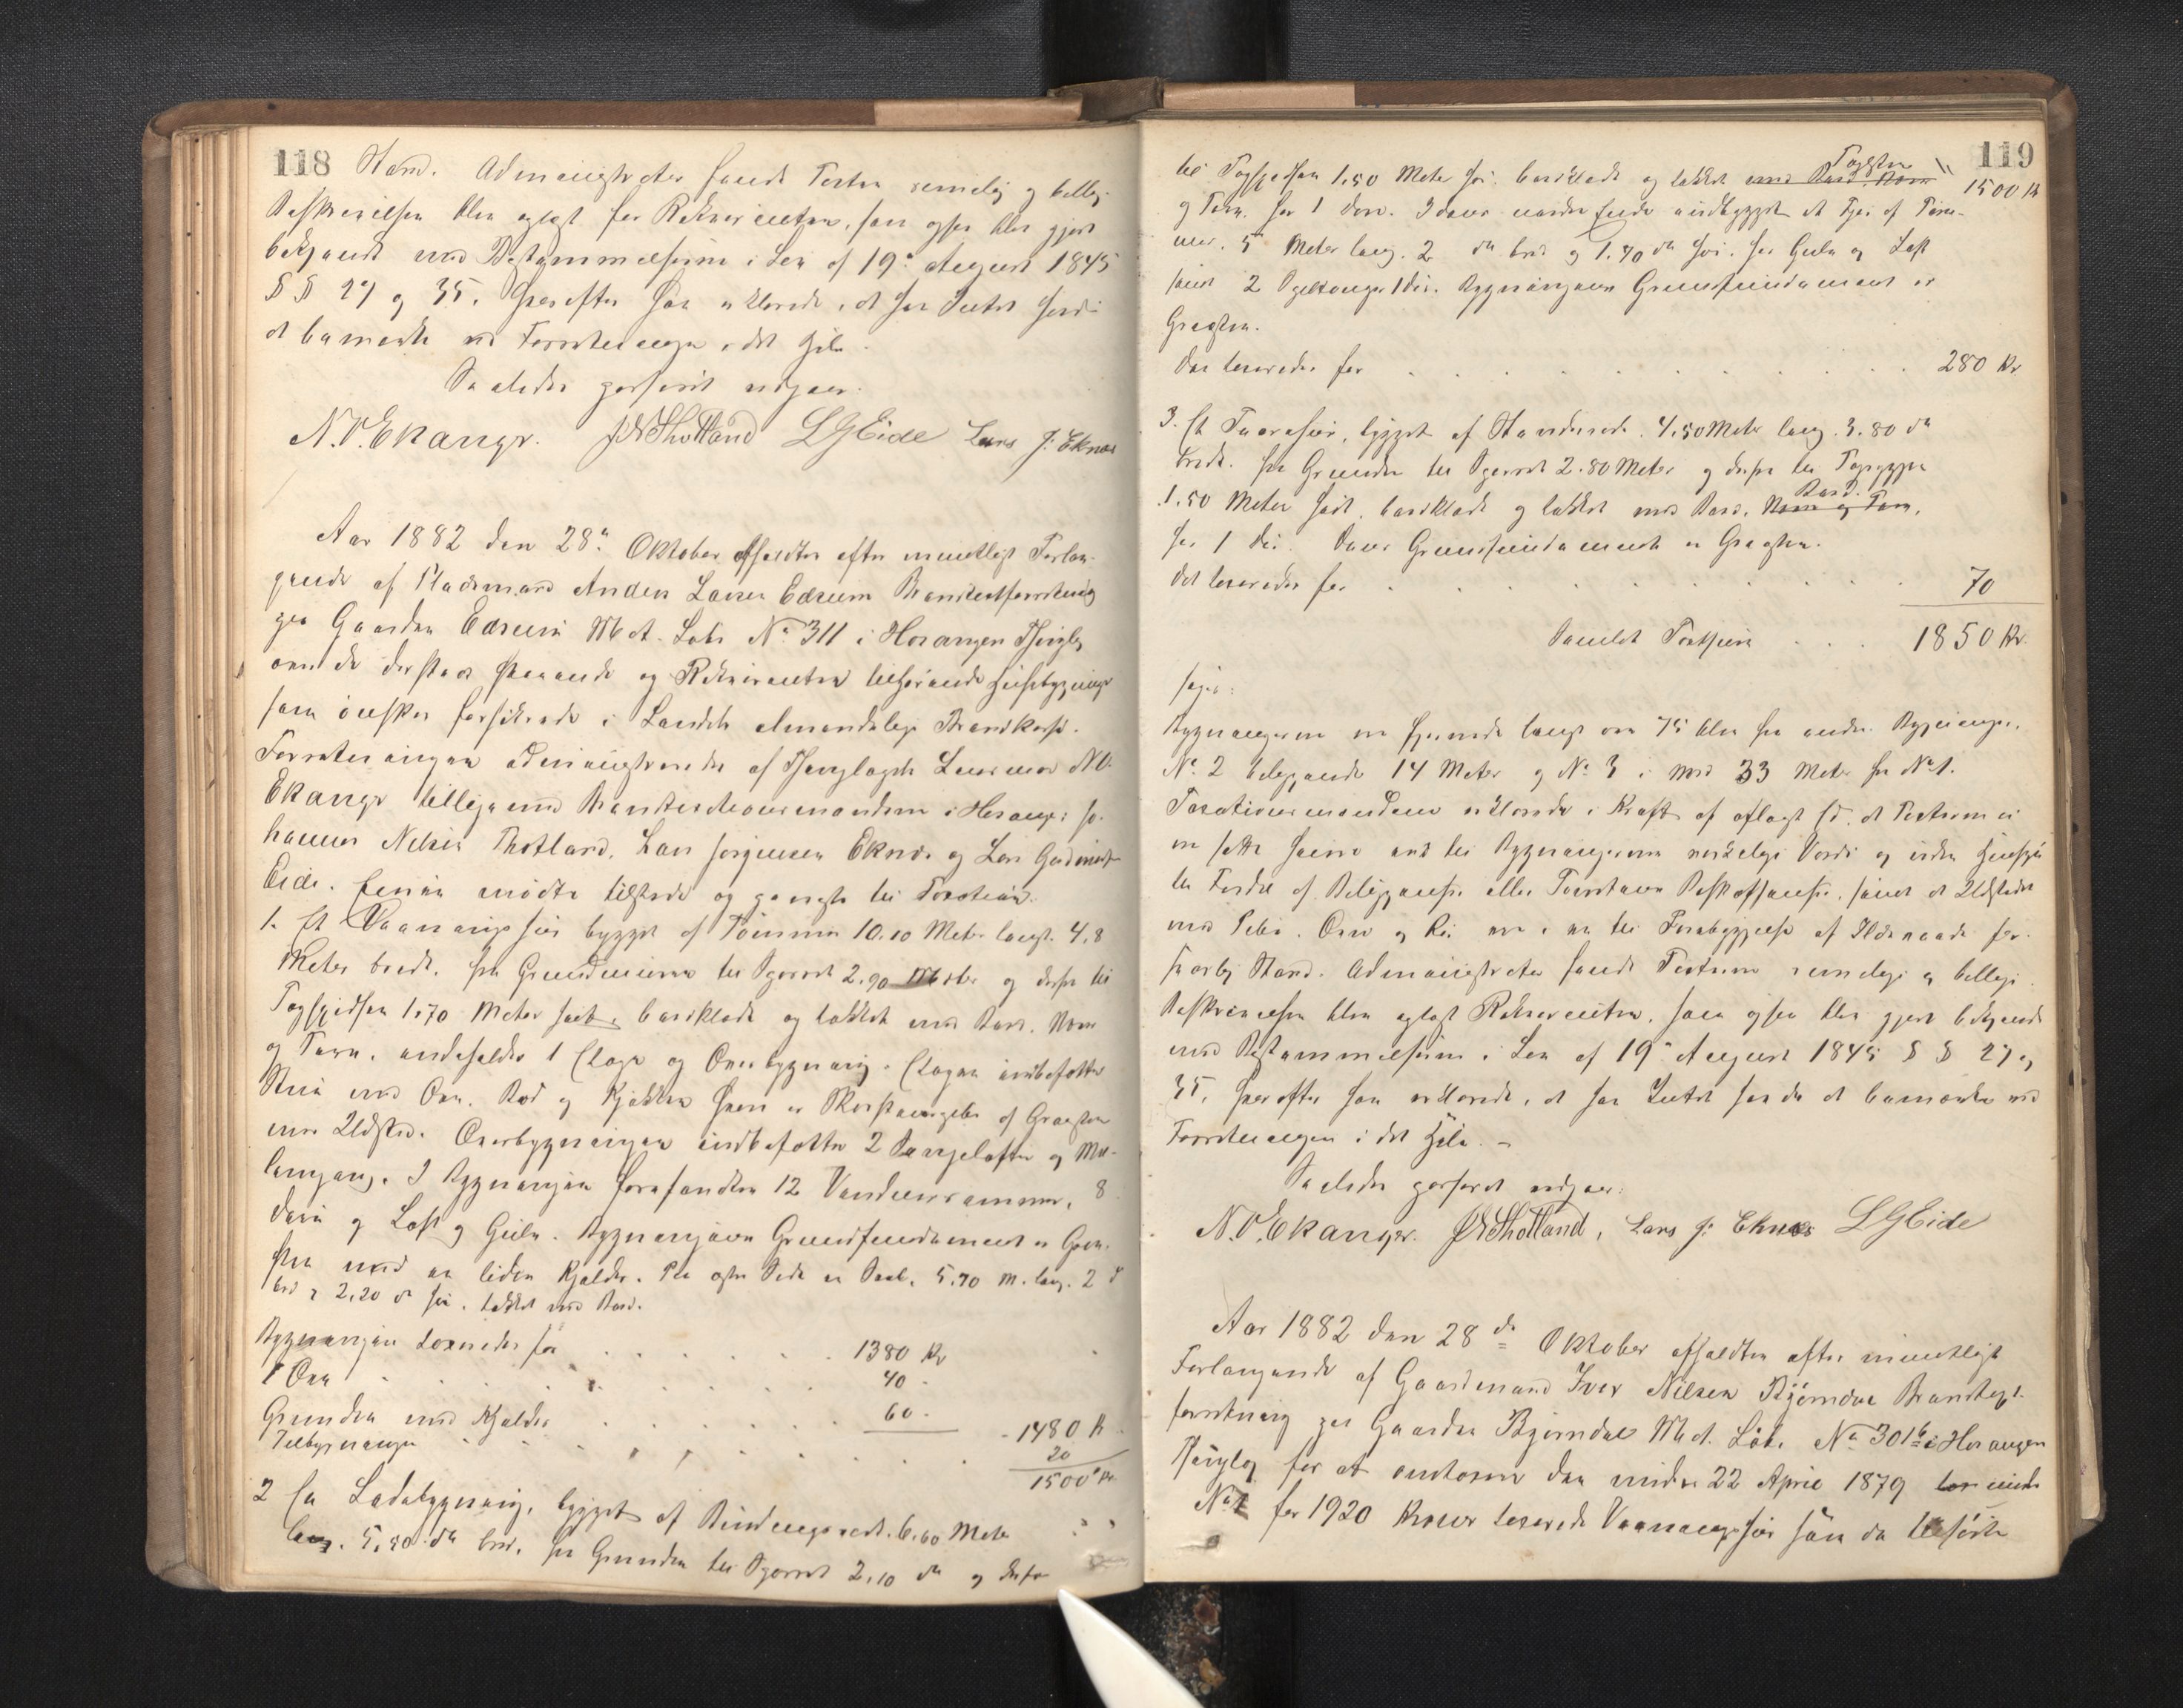 118
Stand. Administrator fandt Taxten rimelig og billig.
Beskrivelsen blev oplæst for Rekvirenten, som ogsaa blev gjort
bekjendt med Bestemmelserne i Lov af 19de August 1845
§ § 27 og 35, hvorefter han erklærede, at han Intet havde
at bemærke ved Forretningen i det Hele.
Saaledes passeret udgaar.
N. O. Ekanger. J N Thotland L G Eide Lars J. Eknæs
Aar 1882 den 28de Oktober afholdtes efter mundtligt Forlan-
gende af Pladsmand Anders Larsen Edseim Brandtaxtforretning
paa Gaarden Edseim Mat. Løbe No 311 i Hosanger Thinglag
over de dersteds staaende og Rekvirenten tilhørende Husebygninger
som ønskes forsikrede i Landets almindelige Brandkasse.
Forretningen administreredes af Thinglagets Lensmand N O.
Ekanger tilligemed Brandtaxationsmændene i Hosanger Jo-
hannes Nilsen Thotland, Lars Jørgensen Eknæs og Lars Gudmundsen
Eide. Eieren mødte tilstede og paaviste til Taxation.
1. Et Vaaningshus bygget af Tømmer 10.10 Meter langt. 4,8
Meter bredt. fra Grundmuren til Sperret 2.90 Meter og derfra til
Taghøiden 1.70 Meter høit, bordklædt og tækket med Bord, Næver
og Tørv, indeholder 1 Etage og Overbygning. Etagen indbefatter
Stue med Ovn. Bod og Kjøkken hvori er Skorstenspibe af Graasten
med Ildsted. Overbygningen indbefatter 2 Sengelofter og Mel-
lemgang. I Bygningen forefandtes 12 Vinduesrammer, 8
Døre og Loft og Gulv. Bygningens Grundfundament er Graa-
sten med en liden Kjælder. Paa østre Side er Sval, 5,70 M. lang. 2 d
bred og 2,20 d høi, tækket med Bord.
Bygningen taxeredes for . . . . . . 1380 Kr
1 Ovn . . . . . . . 40 -
Grunden med Kjælder . . . . . . 60 -
- 1480 K
Tilbygningen . . . . . . . 20
1500 Kr.
2 En Ladebygning, bygget af Bindingsværk. 6.60 Meter
lang. 5,80 do bred. fra Grunden til Sperret 2,10 do og derfra
119
til Taghøiden 1.50 Meter høi, bordklædt og tækket med Bord. Næver Tagsten
1500 K
og Tørv. har 1 Dør. I dens nordre Ende er indbygget et Fjøs af Tøm-
mer. 5 Meter lang. 2 do bred og 1.70 do høi. har Gulv og Loft
samt 2 1 Dør. Bygningens Grundfundament er
Graasten.
Den taxeredes for . . . . . . . 280 Kr
3. Et Tørvehus, bygget af Stavverk. 4.50 Meter lang. 3.80 do
bredt. fra Grunden til Sperret 2.80 Meter og derfra til Tagryggen
1.50 Meter høit, bordklædt og tækket med Bord. Næver og Tørv. Bord.
har 1 Dør. Dens Grundfundament er Graasten.
Det taxeredes for . . . . . . . 70
Samlet Taxtsum . . . 1850 Kr.
siger:
Bygningerne er fjernede langt over 75 Alen fra andre Bygninger.
No 2 beliggende 14 Meter og No 3 i Nord 33 Meter fra No 1.
Taxationsmændene erklærede i Kraft af aflagt Ed, at Taxterne ei
er satte høiere end til Bygningernes virkelige Værdi og uden Hensyn
til Fordel af Beliggenhed eller Tomtens Beskaffenhed, samt at Ildstedet
med Pibe. Ovn og Rør er i en til Forebyggelse af Ildsvaade for-
svarlig Stand. Administrator fandt Taxterne rimelige og billige.
Beskrivelsen blev oplæst Rekvirenten, som ogsaa blev gjort bekjendt
med Bestemmelserne i Lov af 19de August 1845 § § 27 og
35, hvorefter han erklærede, at han Intet havde at bemærke ved
Forretningen i det Hele. -
Saaledes passeret udgaar:
N. O. Ekanger. J N Thotland, Lars J. Eknæs L G Eide
Aar 1882 den 28 de Oktober afholdtes efter mundtligt
Forlangende af Gaardmand Iver Nilsen Bjørndal Brandtaxt-
forretning paa Gaarden Bjørndal Mat. Løbe No 301b i Hosanger
Thinglag for at omtaxere den under 22 April 1879 under
No 1 for 1920 Kroner taxerede Vaaningshus som da tilhørte